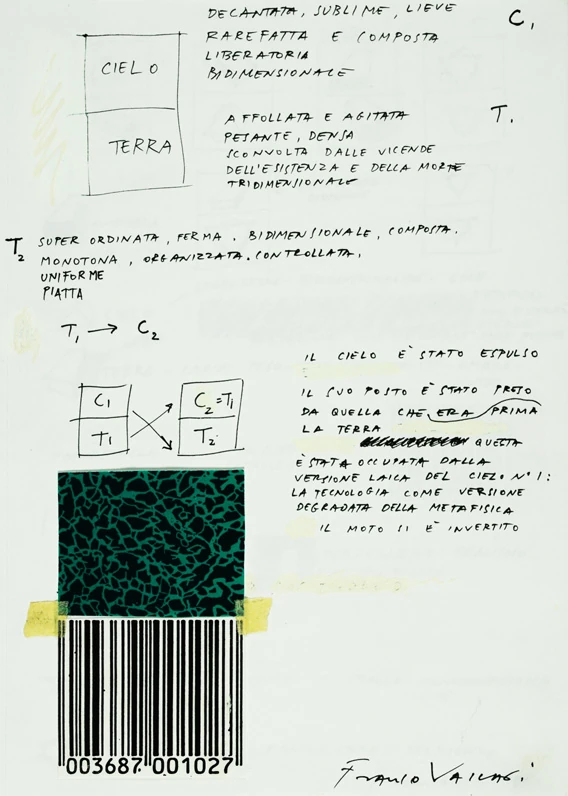 DECANTATA, SUBLIME, LIEVE
C1
RAREFATTA E COMPOSTA
LIBERATORIA
BIDIMENSIONALE
CIELO
TERRA
AFFOLLATA E AGITATA
T.
PESANTE, DENSA
SCONVOLTA DALLE VICENDE
DELL'ESISTENZA E DELLA MORTE
TRIDIMENSIONALE
T2 SUPER ORDINATA, FERMA. BIDIMENSIONALE, COMPOSTA.
MONOTONA, ORGANIZZATA. CONTROLLATA,
UNIFORME
PIATTA
T1 → C2
C1
T1
C2=T1
T2.
IL CIELO È STATO ESPULSO
IL SUO POSTO È STATO PRESO
DA QUELLA CHE ERA PRIMA
LA TERRA
QUESTA
È STATA OCCUPATA DALLA
VERSIONE LAICA DEL CIELO N°1:
LA TECNOLOGIA COME VERSIONE
DEGRADATA DELLA METAFISICA
IL MOTO SI È INVERTITO
003687 001027
Franco Vaccari